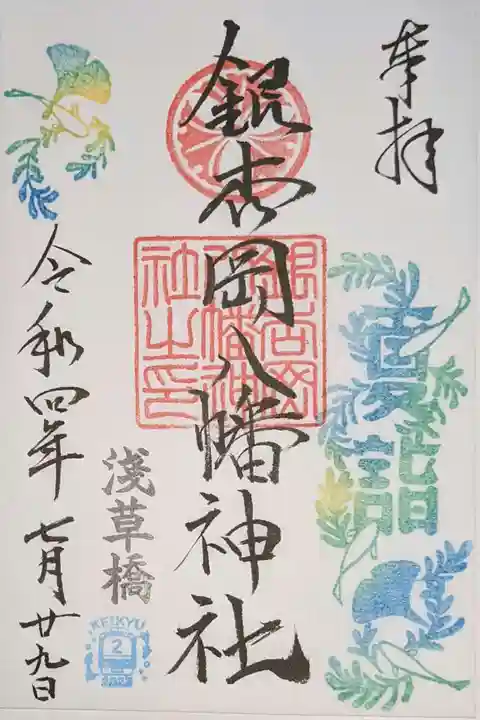 奉拝
夏詣
銀杏岡八幡神社
銀杏岡八幡神社之印
淺草橋
KEIKYU
2
令和四年七月廿九日